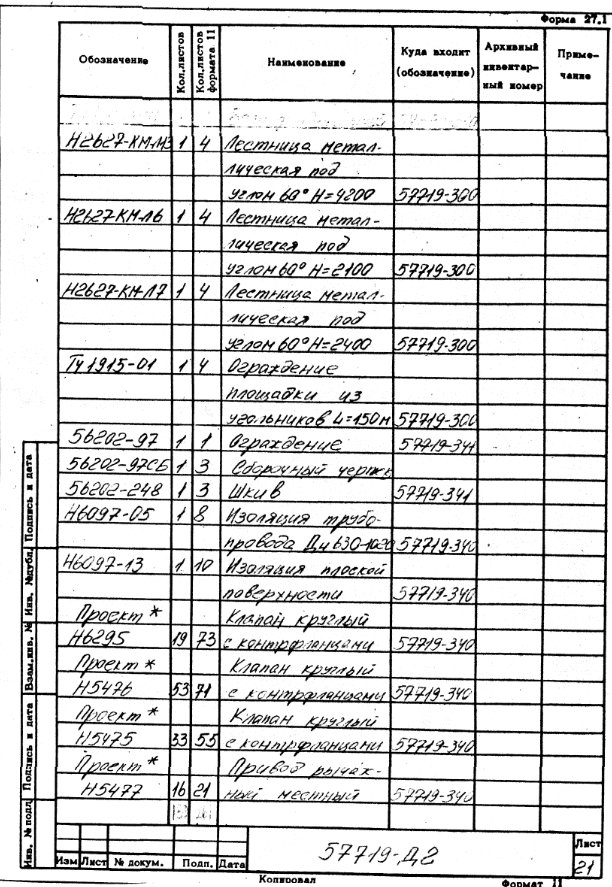 Форма 27.1
Обозначение Кол.листов Кол.листов формата 11 Наименование Куда входит (обозначение) Архивный инвентар- ный номер Приме- чание
Н2627-КМ-М3 1 4 Лестница метал-
лическая под
углом 60° Н=4200 57719-300
Н2627-КМЛ6 1 4 Лестница метал-
лическая под
углом 60° Н=2100 57719-300
Н2627-КМ-Л7 1 4 Лестница метал-
лическая под
углом 60° Н=2400 57719-300
Ту 1915-01 1 4 Ограждение
площадки из
угольников L=150м 57719-300
56202-97 1 1 Ограждение 57719-341
56202-97СБ 1 3 Сборочный чертеж
56202-248 1 3 Шкив 57719-341
Н6097-05 1 8 Изоляция трубо-
провода Ду 630-1020 57719-340
Н6097-13 1 10 Изоляция плоской
поверхности 57719-340
Проект * Клапан круглый
Н6295 19 73 с контрфланцами 57719-340
Проект * Клапан круглый
Н5476 53 71 с контрфланцами 57719-340
Проект * Клапан круглый
Н5475 33 55 с контрфланцами 57719-340
Проект * Привод рычаж-
Н5477 16 21 ный местный 57719-340
Инв. № подл Подпись и дата Взам.инв. № Инв. №дубл. Подпись и дата
Изм Лист № докум. Подп. Дата
57719-Д2
Лист
21
Копировал Формат 11